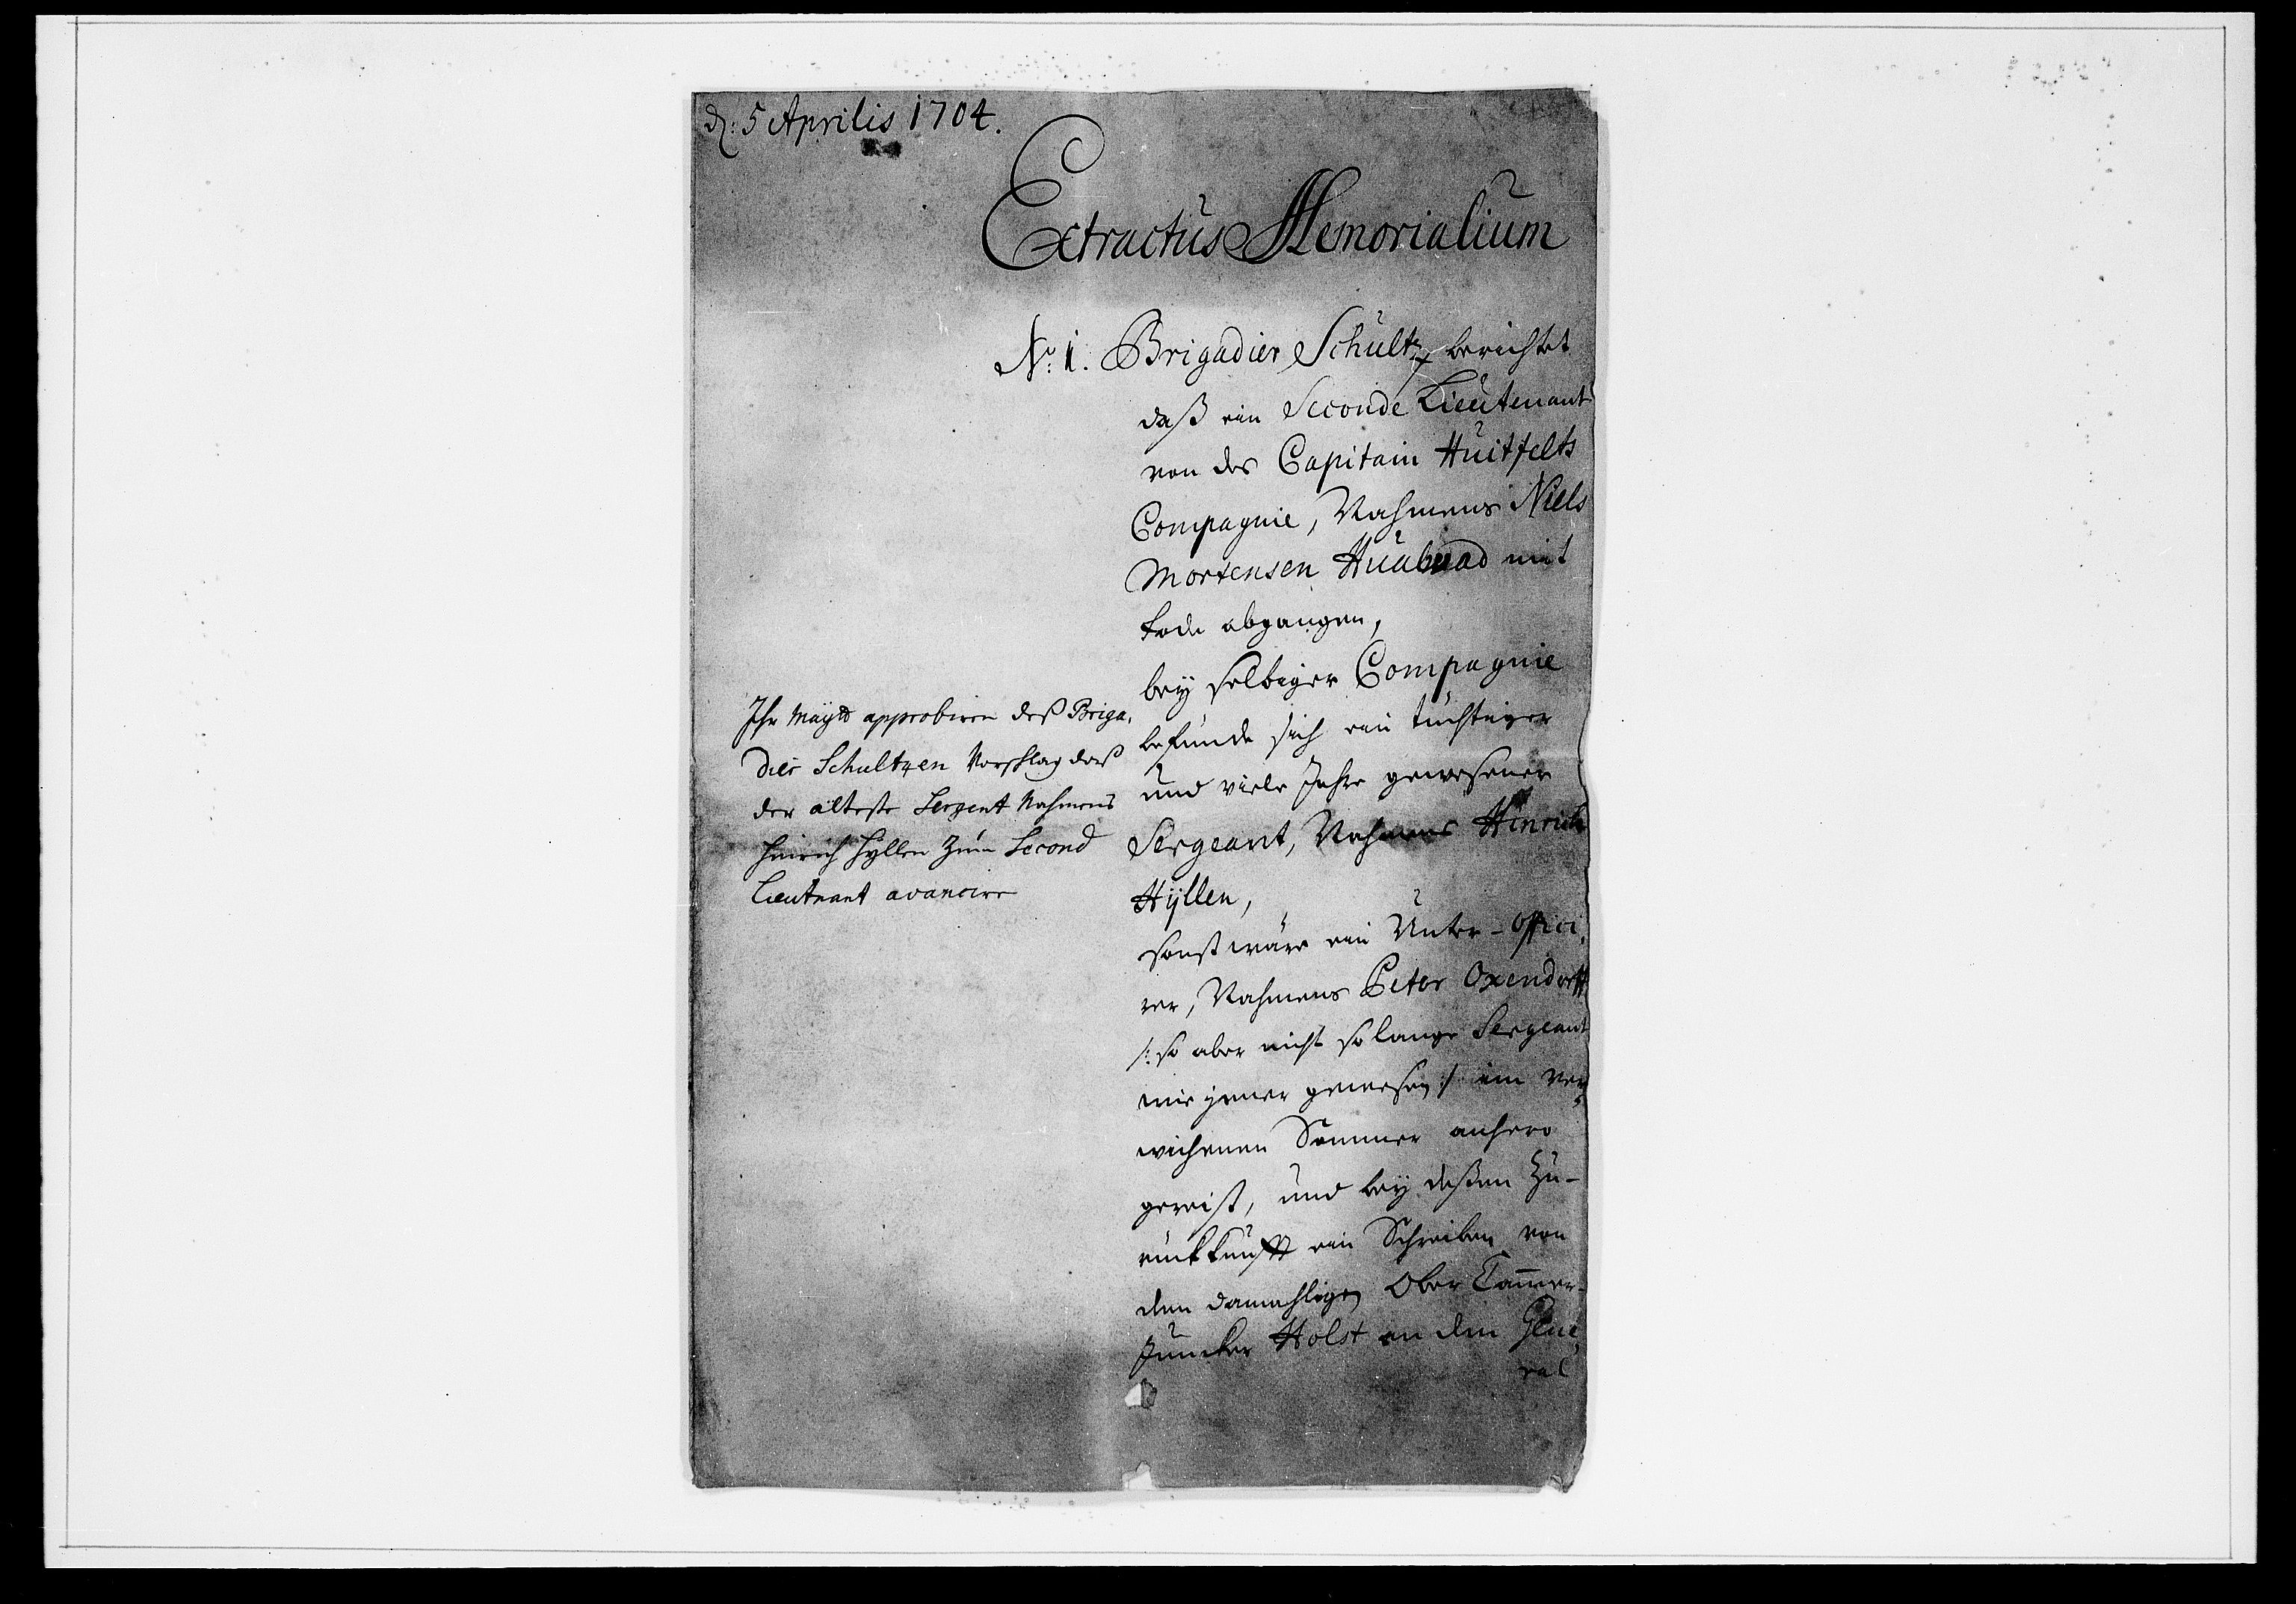 d: 5 Aprilis 1704.
Extractus Memorialium
No: 1. Brigadier Schultz berichtet
daß ein Seconde Lieutenant
von des Capitain Huitfelts
Compagnie, Nahmens Niels
Mortensen mit
tode abgangen,
bey selbiger Compagnie
befünde sich ein tüchtiger
und viele Jahre gewesener
Sergeant, Nahmens Hinrich
Hÿllen,
sonst wäre ein Unter-offici,
rer, Nahmens Peter Oxendorff
/: so aber nicht so lange Sergeant
wie jener gewesen :/ im ver,
wichenen Sommer anhero
gereist, und beÿ deßen Zu-
rückkunfft ein Schreiben von
dem damahligen Ober Cammer-
Juncker Holst an den Gene,
ral
Ihr Maytt approbiren deß Briga,
dier Schultzen Vorschlag daß
der älteste Sergent Nahmens
Hinrich Hyllen zum Second
Lieutnant avancire